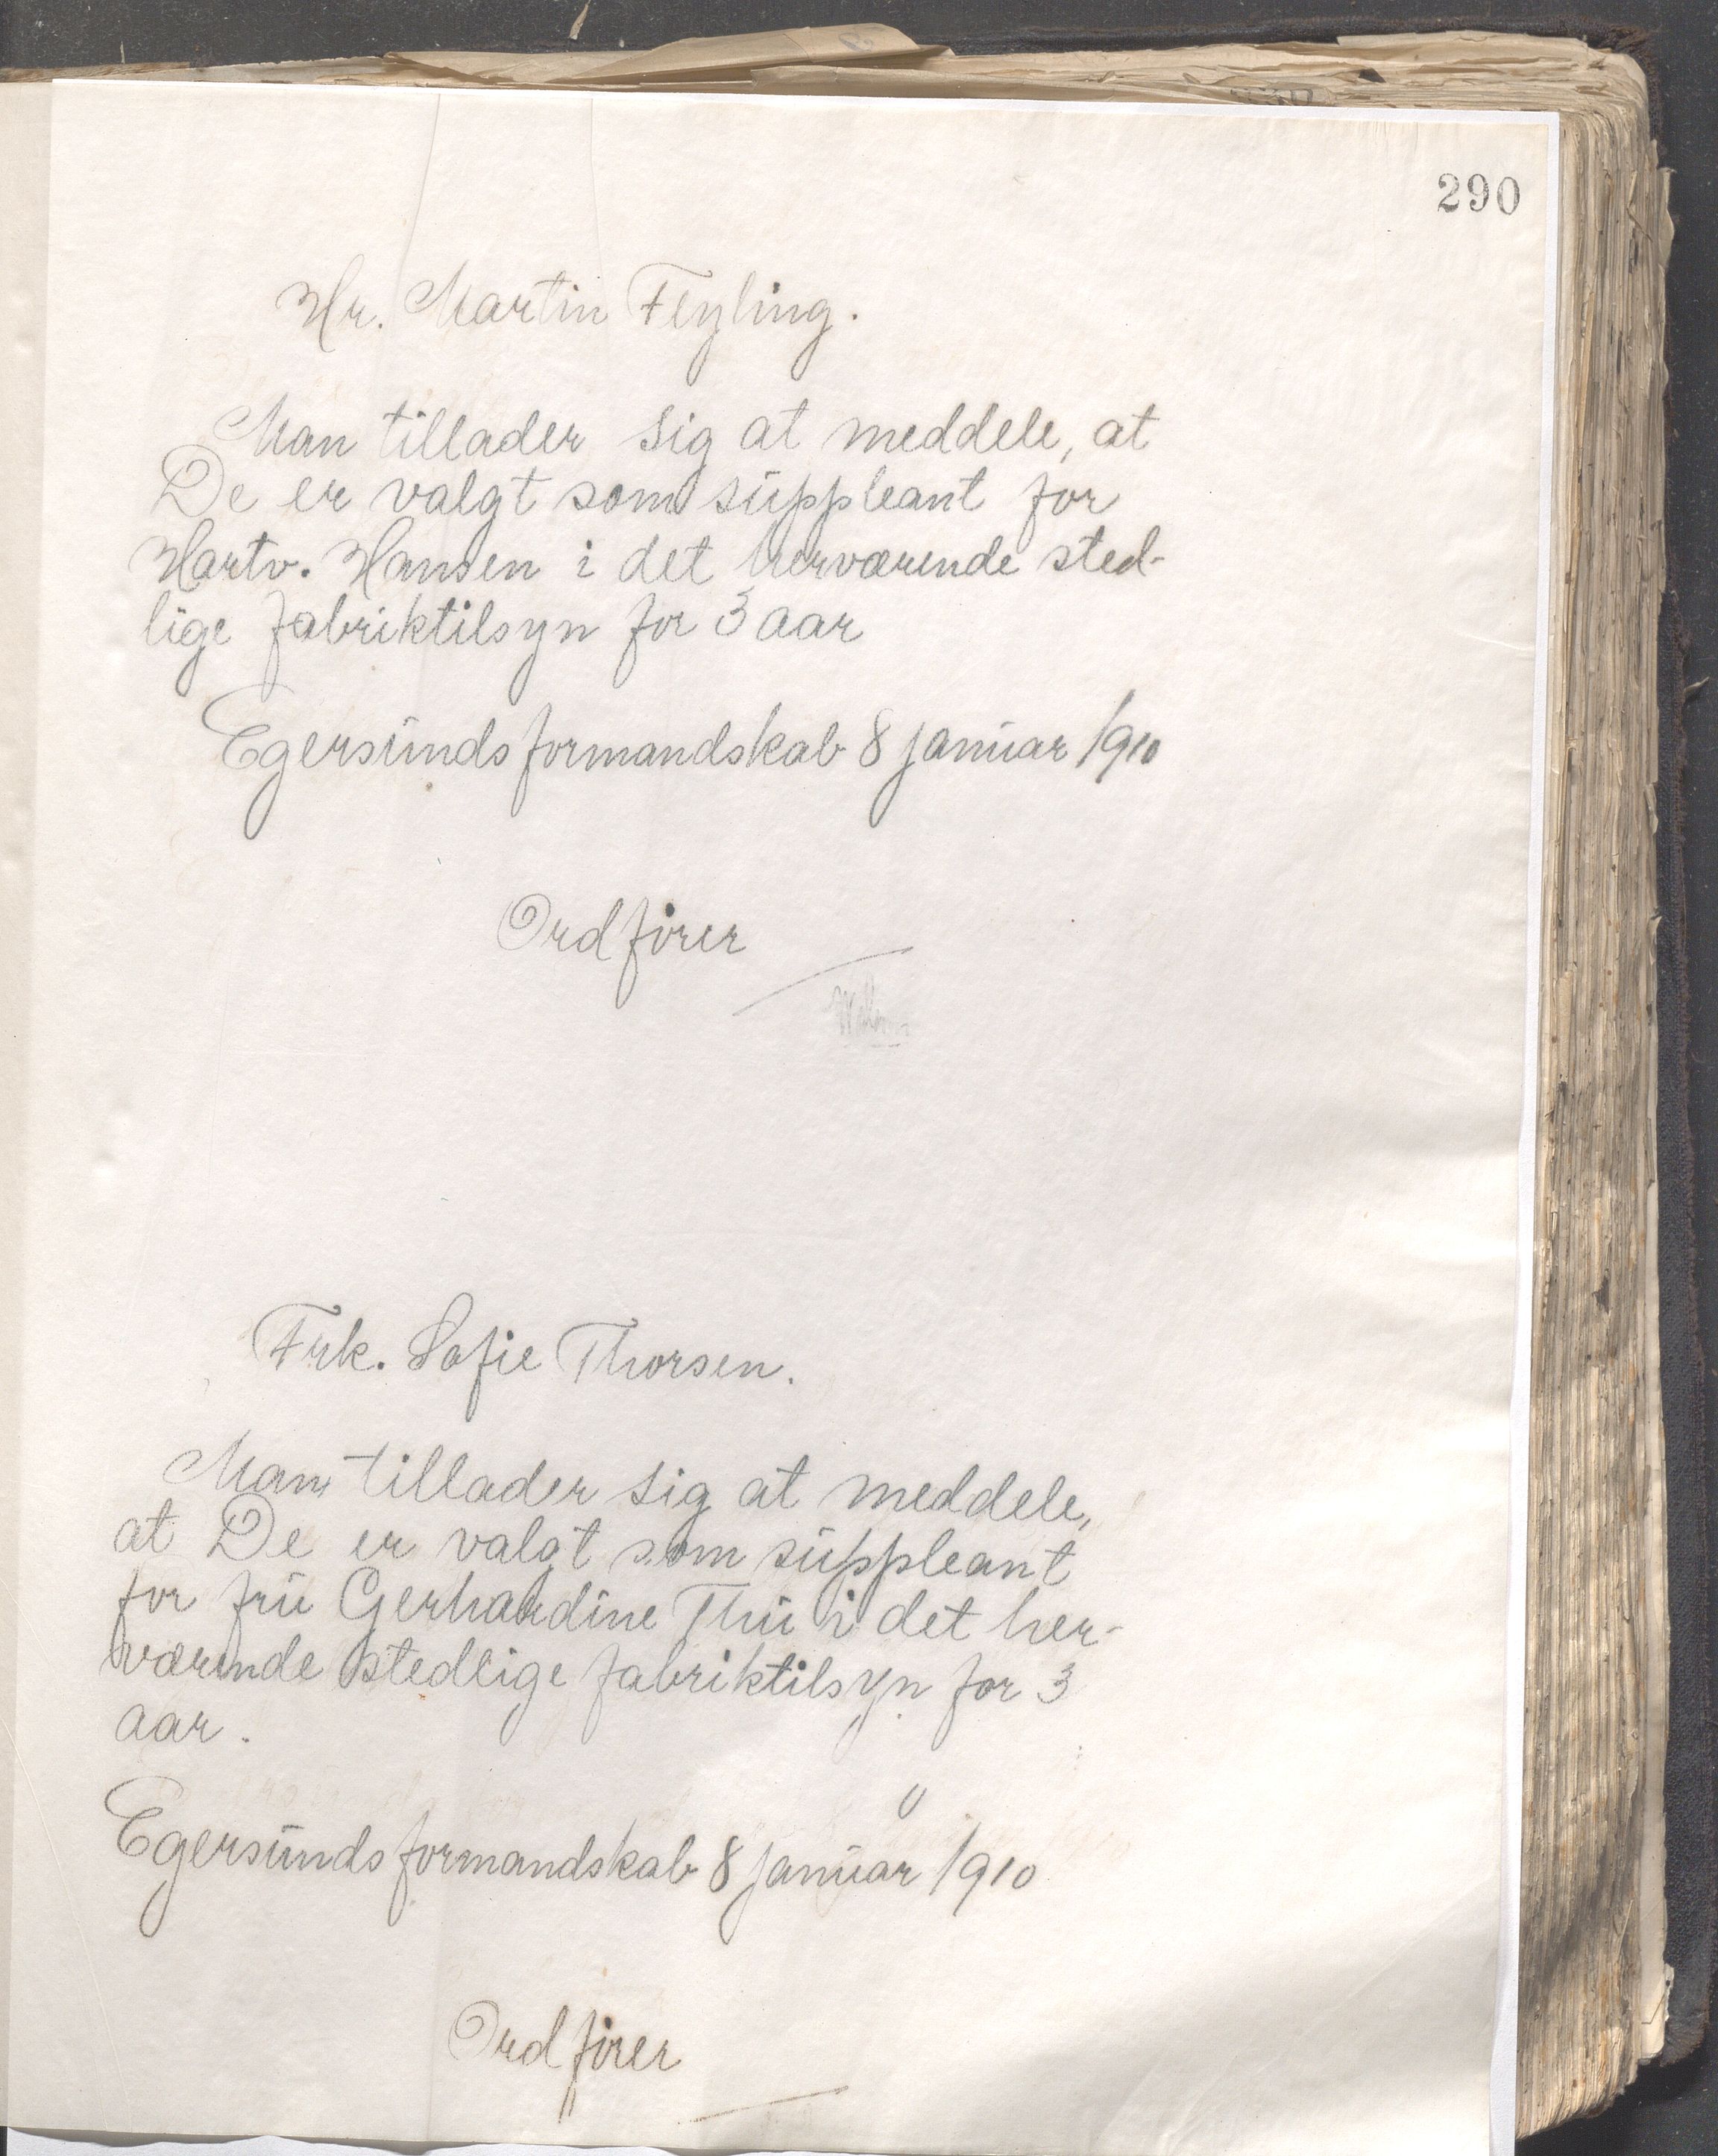 290
Hr. Martin Feyling.
Man tillader sig at meddele, at
De er valgt som suppleant for
Hartv. Hansen i det herværende sted-
lige fabriktilsyn for 3 aar
Egersunds formandskab 8 januar 1910
Ordfører
Frk. Sofie Thorsen.
Man tillader sig at meddele,
at De er valgt som suppleant
for fru Gerhardine Thu i det her-
værende stedlige fabriktilsyn for 3
aar.
Egersunds formandskab 8 januar 1910
Ordfører